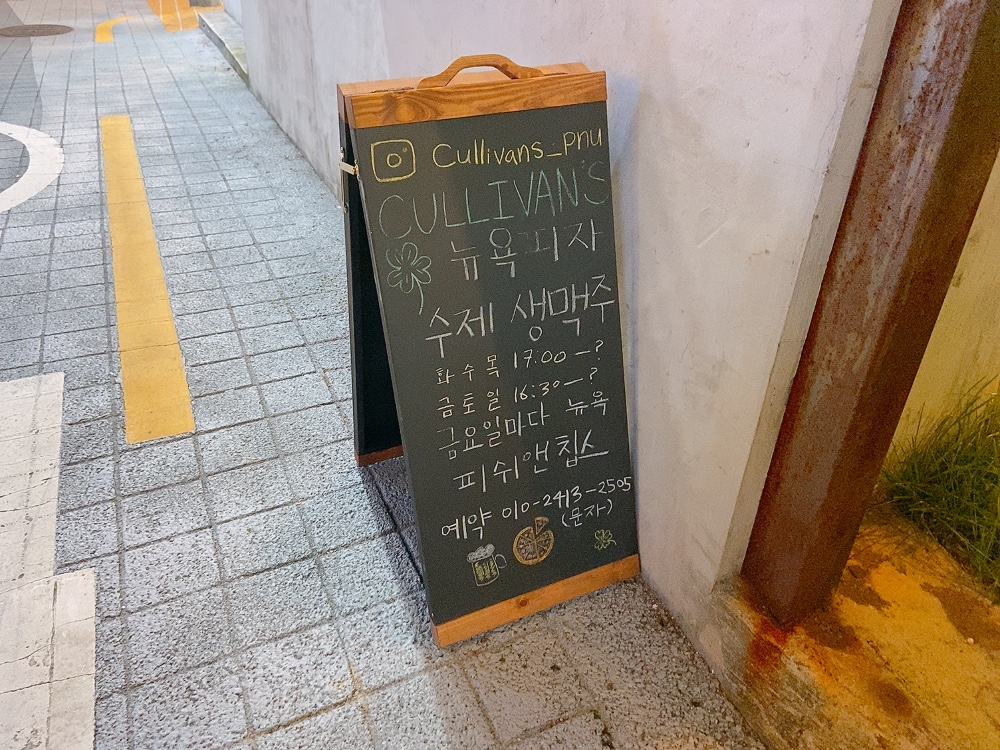 Cullivans_pnu
CULLIVAN'S
뉴욕피자
수제 생맥주
화수목 17:00-?
금토일 16:30-?
금요일마다 뉴욕
피쉬앤칩스
예약 010-2413-2505
(문자)